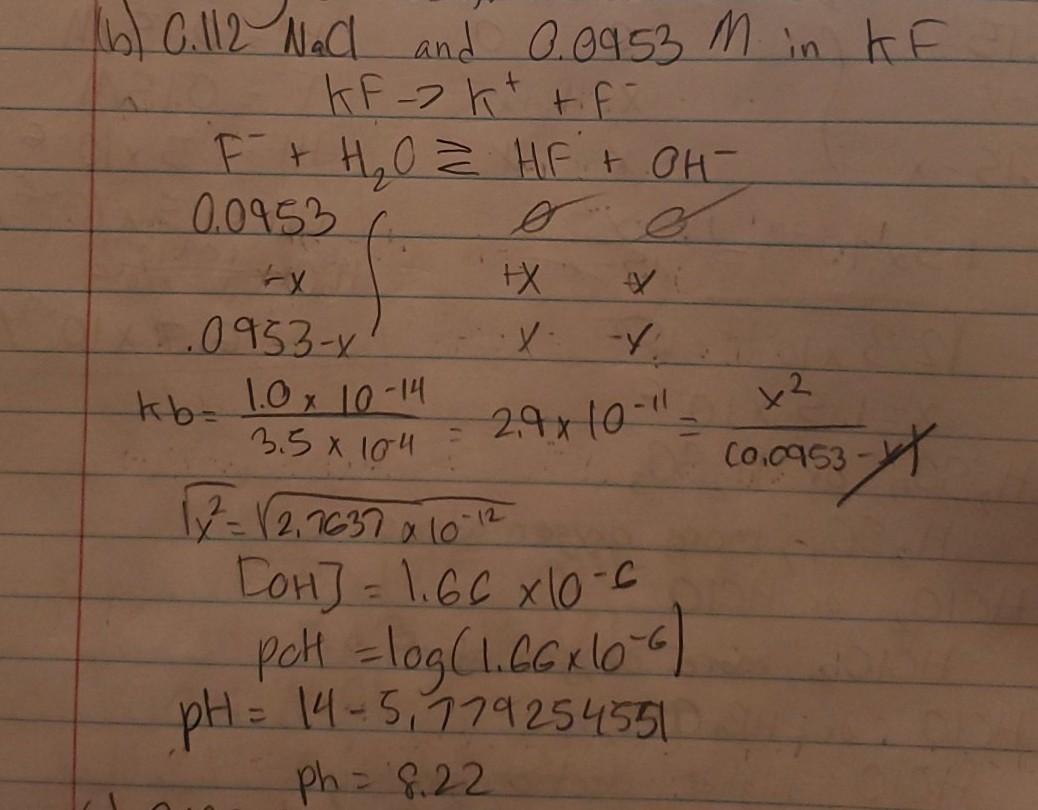 (b) 0.112 NaCl and 0.0953 M in KF
KF -> K⁺ + F⁻
F⁻ + H₂O ⇌ HF + OH⁻
0.0953 0 0
-x +x +x
.0953-x x x
Kb = 1.0 x 10⁻¹⁴ / 3.5 x 10⁻⁴ = 2.9 x 10⁻¹¹ = x² / (0.0953 - x)
√x² = √2.7637 x 10⁻¹²
[OH] = 1.66 x10⁻⁶
pOH = log(1.66x10⁻⁶)
pH = 14 - 5.779254551
ph = 8.22